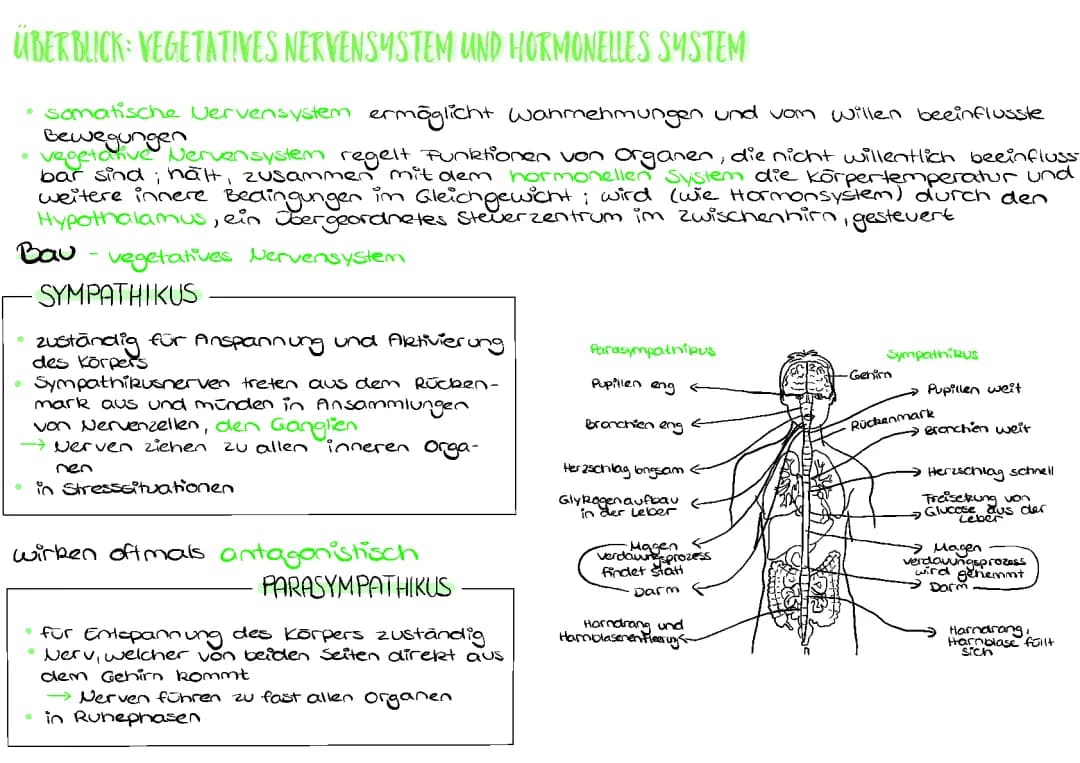 ÜBERBLICK: VEGETATIVES NERVENSYSTEM UND HORMONELLES SYSTEM
• somatische Nervensystem ermöglicht Wahrnehmungen und vom Willen beeinflusste
Bewegungen
• vegetative Nervensystem regelt Funktionen von Organen, die nicht willentlich beeinfluss
bar sind; hält, zusammen mit dem hormonellen System die Körpertemperatur und
weitere innere Bedingungen im Gleichgewicht; wird (wie Hormonsystem) durch den
Hypothalamus, ein übergeordnetes Steuerzentrum im Zwischenhirn, gesteuert
Bau - vegetatives Nervensystem
SYMPATHIKUS
• zuständig für Anspannung und Aktivierung
des Körpers
• Sympathikusnerven treten aus dem Rücken-
mark aus und münden in Ansammlungen
von Nervenzellen, den Ganglien
→ Nerven ziehen zu allen inneren Orga-
nen
• in Stresssituationen
wirken oftmals antagonistisch
PARASYMPATHIKUS
• für Entspannung des Körpers zuständig
• Nerv, welcher von beiden Seiten direkt aus
dem Gehirn kommt
→ Nerven führen zu fast allen Organen
• in Ruhephasen
Parasympathikus
Pupillen eng
Bronchien eng
Herzschlag langsam
Glykogenaufbau
in der Leber
Magen
verdauungsprozess
findet statt
Darm
Harndrang und
Harnblasenentleerung
Sympathikus
Gehirn
Pupillen weit
Rückenmark
Bronchien weit
Herzschlag schnell
Freisetzung von
Glucose aus der
Leber
Magen
verdauungsprozess
wird gehemmt
Darm
Harndrang,
Harnblase füllt
sich